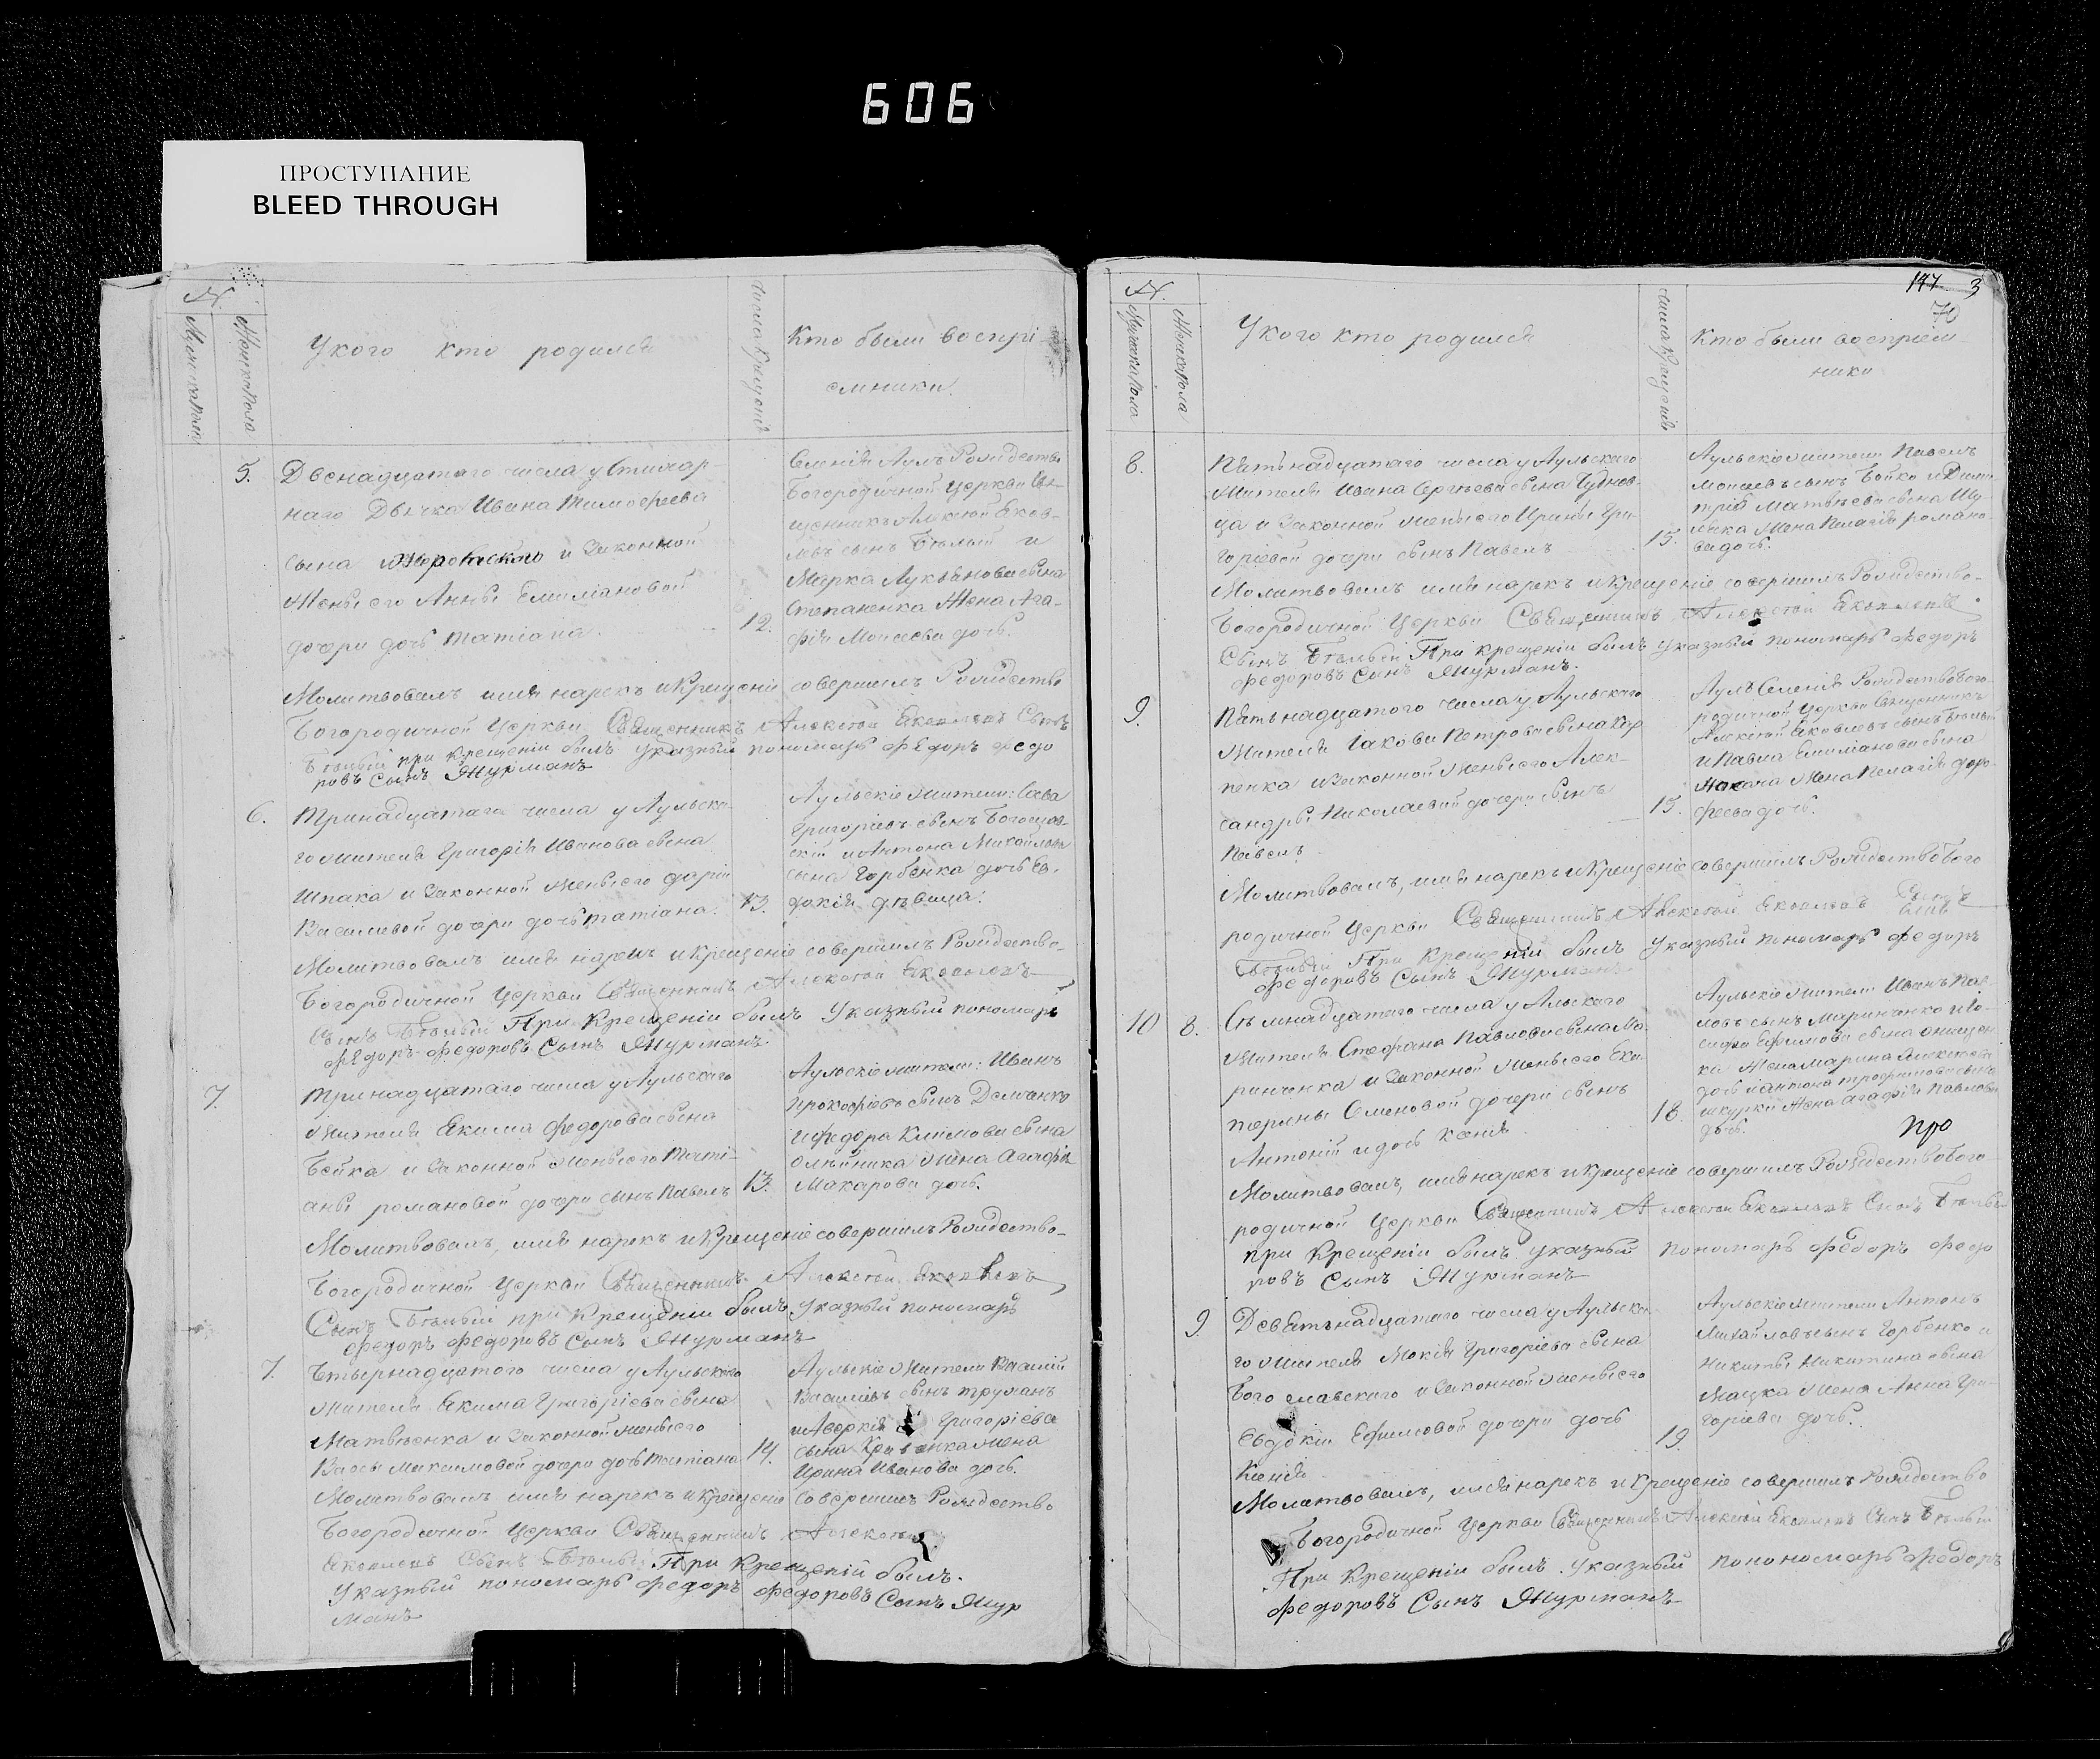 606
ПРОСТУПАНИЕ
BLEED THROUGH
№.
Мужеска пола
Женска пола
У кого кто родился
Числа крещенія
Кто были воспрі-
емники
5.
Двенадцатаго числа у Стихар-
наго Дьячка Ивана Тимофеева
сына и Законной
Жены его Анны Емиліановой
дочери дочь Татіана.
12.
Селенія Аулъ Рождество
Богородичной Церкви Свя-
щенникъ Алексѣй Яков-
левъ сынъ Бѣлый и
Марка Лукьянова сына
Степаненка Жена Ага-
фія Моисеева дочь.
Молитвовалъ имя нарекъ и Крещеніе совершилъ Рождество
Богородичной Церкви Священникъ Алексѣй Яковлевъ Сынъ
Бѣлый при Крещеніи былъ указный пономарь Федоръ Федо
ровъ Сынъ Журманъ
6.
Тринадцатаго числа у Аульска-
го жителя Григорія Иванова сына
Шпака и Законной жены его Даріи
Васильевой дочери дочь Татіана.
13.
Аульскіе жители: Сава
Григоріевъ сынъ Богослав-
скій и Антона Михайлова
сына Горбенка дочь Ев-
докія дѣвица.
Молитвовалъ имя нарекъ и Крещеніе совершилъ Рождество-
Богородичной Церкви Священникъ Алексѣй Яковлевъ
Сынъ Бѣлый При Крещеніи былъ Указный пономарь
Федоръ Федоровъ Сынъ Журманъ.
7.
Тринадцатаго числа у Аульскаго
жителя Екима Федорова сына
Бойка и Законной жены его Тати-
аны романовой дочери сынъ Павелъ
13.
Аульскіе жители: Иванъ
Прокофіевъ сынъ Демченко
и Федора Климова сына
Олѣйника жена Агафія
Макарова дочь.
Молитвовалъ, имя нарекъ и Крещеніе совершилъ Рождество-
Богородичной Церкви Священникъ Алексѣй Яковлевъ
Сынъ Бѣлый при Крещеніи былъ указный пономарь
Федоръ Федоровъ Сынъ Журманъ
7.
Етырнадцатого числа у Аульского
жителя Екима Григоріева сына
Матвѣенка и Законной жены его
Васы Максимовой дочери дочь Татіана
14.
Аульскіе жители Василій
Василіевъ сынъ труманъ
и Аверкія Григоріева
сына жена
Ирина Иванова дочь.
Молитвовалъ имя нарекъ и Крещеніе Совершилъ Рождество
Богородичной Церкви Священникъ Алексѣй
Яковлевъ Сынъ Бѣлый При Крещеніи былъ.
Указный пономарь Федоръ Федоровъ Сынъ Жур
манъ
147 3
70
№.
Мужеска пола
Женска пола
У кого кто родился
Числа Крещенія
Кто были воспріем-
ники
8.
Пятьнадцатаго числа у Аульскаго
жителя Ивана Сергѣева сына Чуднов-
ца и Законной жены его Ирины Гри-
горіевой дочери сынъ Павелъ
15.
Аульскіе жители Павелъ
Моисеевъ сынъ Бойко и Дми-
трія Матвѣева сына Шу-
лика Жена Пелагія романо-
ва дочь.
Молитвовалъ имя нарекъ и Крещеніе совершилъ Рождество-
Богородичной Церкви Священникъ Алексѣй Яковлевъ
Сынъ Бѣлый При крещеніи былъ указный пономарь Федоръ
Федоровъ Сынъ Журманъ.
9.
Пятьнадцатого числа у Аульскаго
жителя Іакова Петрова сына Кар
пенка и Законной жены его Алек-
сандры Николаевой дочери сынъ
Павелъ
15.
Аулъ Селенія Рождество Бого-
родичной Церкви Священникъ
Алексѣй Яковлевъ сынъ Бѣлый
и Павла Емиліанова сына
жена Пелагія доро-
феева дочь.
Молитвовалъ, имя нарекъ и Крещеніе совершилъ Рождество Бого
родичной Церкви Священникъ Алексѣй Яковлевъ Сынъ
Бѣлый При Крещеніи былъ указный пономарь Федоръ
Федоровъ Сынъ Журманъ
10 8.
Сѣмнадцатаго числа у Аульскаго
жителя Стефана Павлова сына Ма-
ринченка и Законной жены его Ека-
терины Семеновой дочери сынъ
Антоній и дочь Ксенія
18.
Аульскіе жители Иванъ Пав-
ловъ сынъ Маринченко и Іо-
сифа Ефимова сына онищен
ка Жена Марина Алексѣева
дочь и антона трофимова сына
шкурки Жена Агафія Павлова
дочь.
Про
Молитвовалъ, имя нарекъ и Крещеніе совершилъ Рождество Бого
родичной Церкви Священникъ Алексѣй Яковлевъ Сынъ Бѣлый
при Крещеніи былъ указный пономарь Федоръ Федо
ровъ Сынъ Журманъ
9.
Девятьнадцатаго числа у Аульска-
го жителя Мокія Григоріева сына
Богославскаго и Законной жены его
Евдокіи Ефимовой дочери дочь
Ксенія
19.
Аульскіе жители Антонъ
Михайловъ сынъ Горбенко и
Никиты Никитина сына
Мацка жена Анна Гри-
горіева дочь.
Молитвовалъ, имя нарекъ и Крещеніе совершилъ Рождество
Богородичной Церкви Священникъ Алексѣй Яковлевъ Сынъ Бѣлый
При Крещеніи былъ. Указный понономарь Федоръ
Федоровъ Сынъ Журманъ